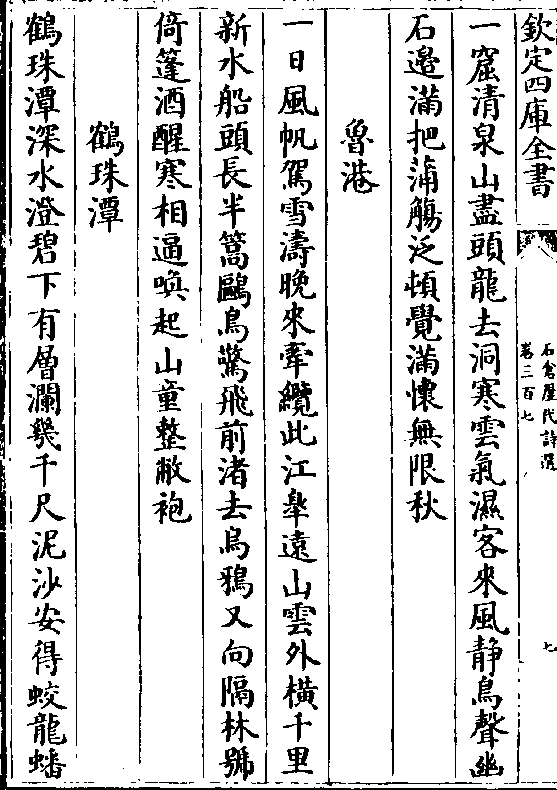 欽定四庫全書
石倉歷代詩選
卷三百七
七
一窟清泉山盡頭龍去洞寒雲氣濕客來風静鳥聲幽
石邉滿把蒲觴泛頓覺滿懷無限秋
魯港
一日風帆駕雪濤晚來牽纜此江皐遠山雲外横千里
新水船頭長半篙鷗鳥驚飛前渚去烏鴉又向隔林號
倚篷酒醒寒相逼喚起山童整敝袍
鶴珠潭
鶴珠潭深水澄碧下有層瀾幾千尺泥沙安得蛟龍蟠